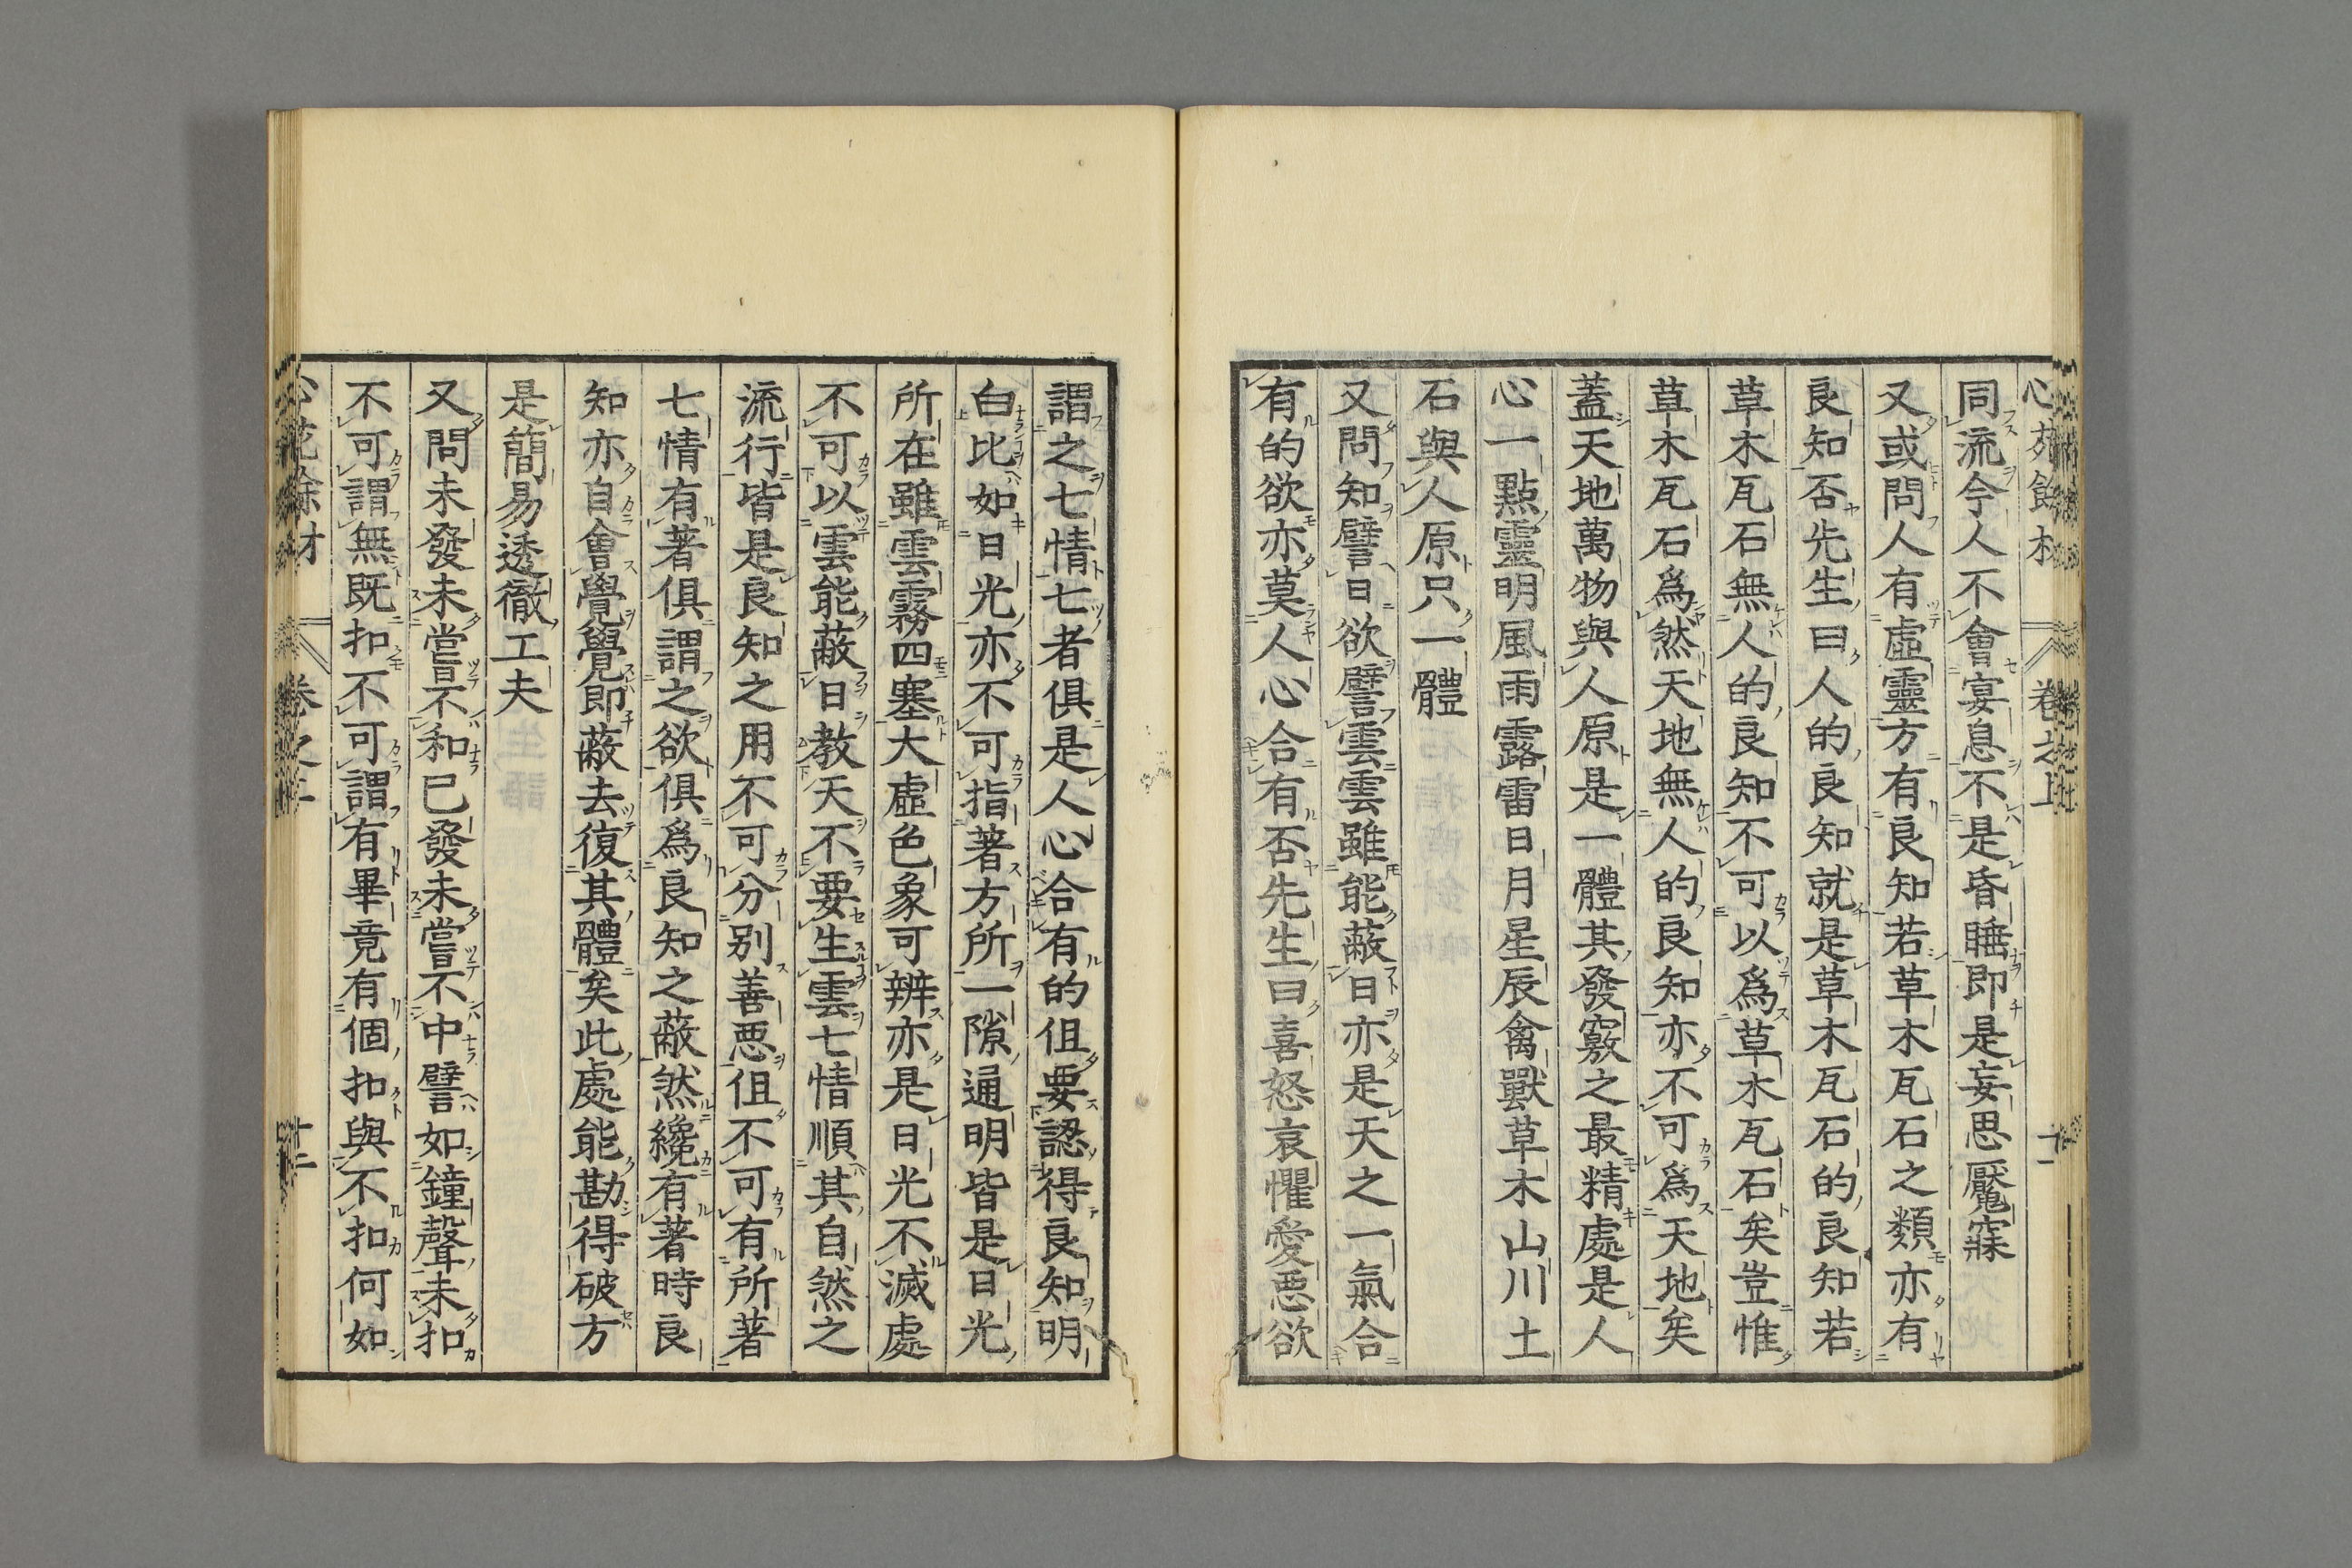 心苑餘材 卷之上 十一
同流今人不會宴息不是昏睡即是妄思魘寐
又或問人有虛靈方有良知若草木瓦石之類亦有
良知否先生曰人的良知就是草木瓦石的良知若
草木瓦石無人的良知不可以爲草木瓦石矣豈惟
草木瓦石爲然天地無人的良知亦不可爲天地矣
蓋天地萬物與人原是一體其發竅之最精處是人
心一點靈明風雨露雷日月星辰禽獸草木山川土
石與人原只一體
又問知譬日欲譬雲雲雖能蔽日亦是天之一氣合
有的欲亦莫人心合有否先生曰喜怒哀懼愛惡欲
謂之七情七者俱是人心合有的但要認得良知明
白比如日光亦不可指著方所一隙通明皆是日光
所在雖雲霧四塞大虛色象可辨亦是日光不滅處
不可以雲能蔽日教天不要生雲七情順其自然之
流行皆是良知之用不可分別善悪但不可有所著
七情有著俱謂之欲俱爲良知之蔽然纔有著時良
知亦自會覺覺即蔽去復其體矣此處能勘得破方
是簡易透徹工夫
又問未發未嘗不和已發未嘗不中譬如鐘聲未扣
不可謂無既扣不可謂有畢竟有個扣與不扣何如